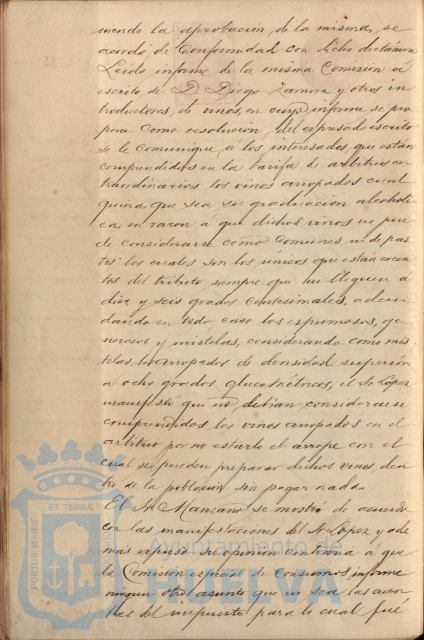 niendo la aprobación de la misma, se
acordó de Conformidad con dicho dictámen
Leido informe de la misma Comisión á
escrito de D. Diego Zamora y otros in
troductores de vinos, en cuyo informe se pro
pone como resolución del expresado escrito
se le comunique a los interesados, que están
comprendidos en la tarifa de arbitrios ex
traordinarios los vinos arropados cual
quiera que sea su graduación alcoholi
ca en razon a que dichos vinos no pue
de considerarse como comunes ni de pas
to: los cuales son los unicos que están exen
tos del tributo siempre que no lleguen a
diez y seis grados centesimales, adeu
dando en todo caso los espumosos, ge
nerosos y mistelas, considerando como mis
telas, los arropados de densidad superior
a ocho grados glucométricos, el Sr Lopez
manifestó que no debian considerarse
comprendidos los vinos arropados en el
arbitrio por no estarlo el arrope con el
cual se pueden preparar dichos vinos, den
tro de la población sin pagar nada
El Sr Manzano se mostró de acuerdo
con las manifestaciones del Sr Lopez y ade
mas expuso su opinion contraria a que
la Comisión especial de Consumos, informe
ningun otro asunto que no sea las cuen
tas del impuesto para lo cual fué
PORTUS MARIS ET TERRAE
Ayuntamiento de